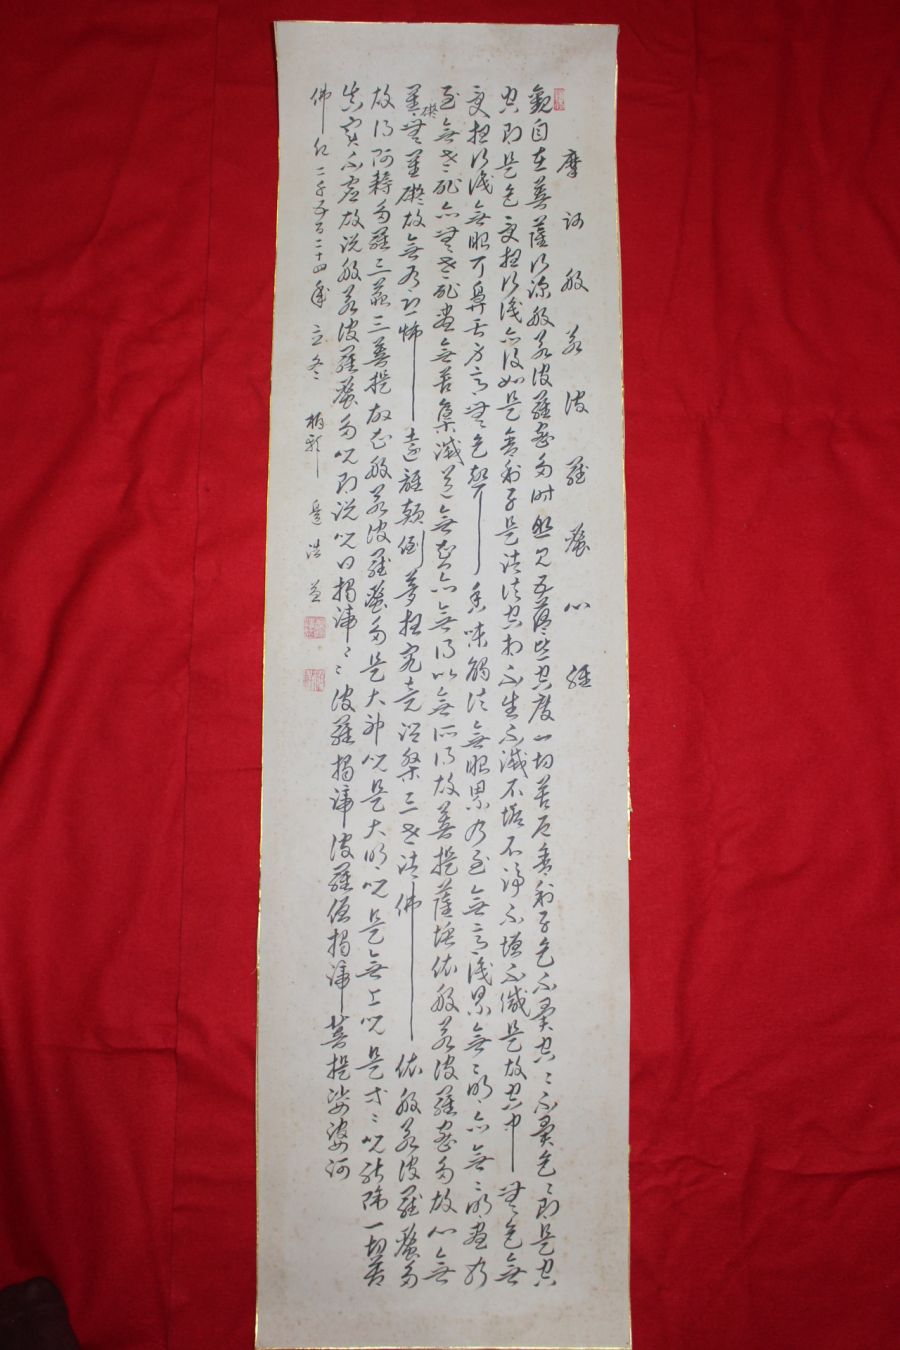 摩訶般若波羅蜜心經
觀自在菩薩行深般若波羅蜜多時照見五蘊皆空度一切苦厄舍利子色不異空〻不異色〻卽是空
空卽是色受想行識亦復如是舍利子是諸法空相不生不滅不垢不淨不增不減是故空中無色無
受想行識無眼耳鼻舌身意無色聲香味觸法無眼界乃至無意識界無〻明亦無〻明盡乃
至無老死亦無老死盡無苦集滅道無智亦無得以無所得故菩提薩埵依般若波羅蜜多故心無
罣礙無罣礙故無有恐怖遠離顛倒夢想究竟涅槃三世諸佛依般若波羅蜜多
故得阿耨多羅三藐三菩提故知般若波羅蜜多是大神呪是大明呪是無上呪是無等〻呪能除一切苦
眞實不虛故說般若波羅蜜多呪卽說呪曰揭諦〻〻波羅揭諦波羅僧揭諦菩提娑婆訶
佛紀二千五百二十四年立冬